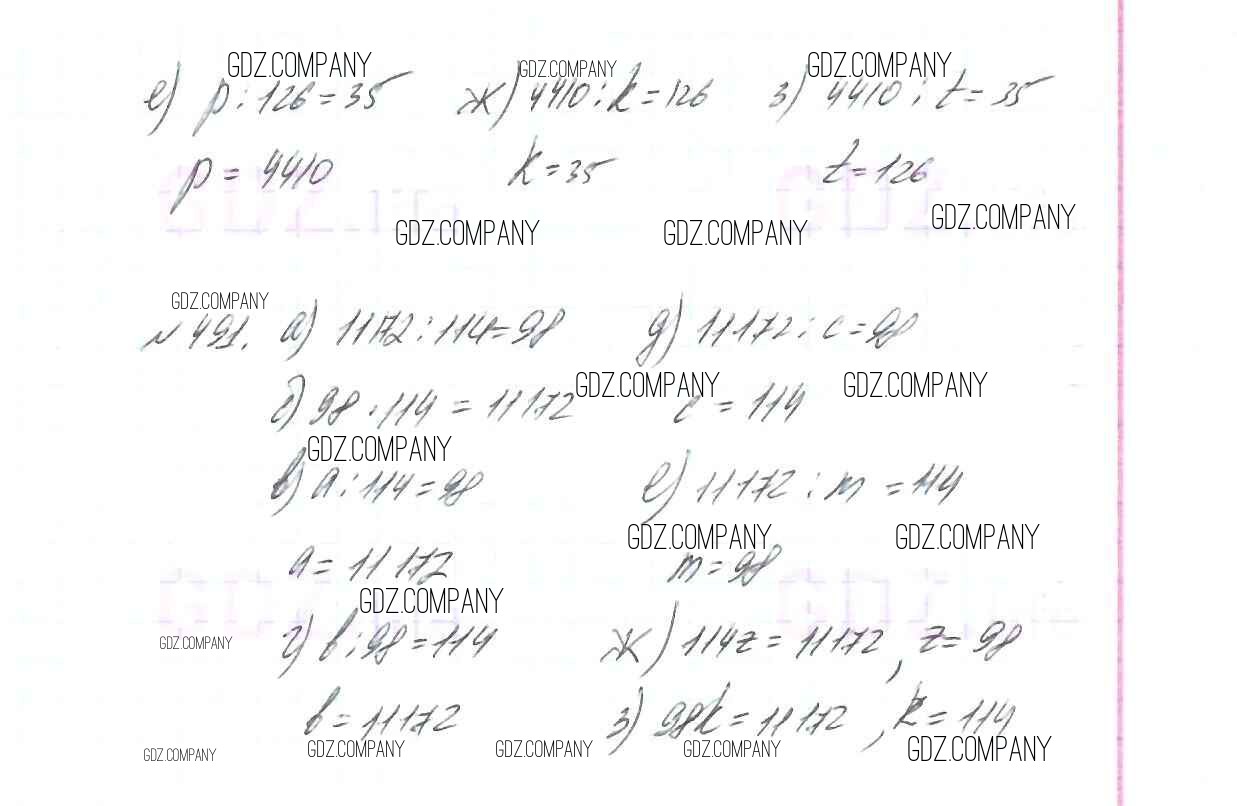 GDZ.COMPANY GDZ.COMPANY GDZ.COMPANY
е) p : 126 = 35 ж) 4410 : k = 126 з) 4410 : t = 35
p = 4410 k = 35 t = 126
GDZ.COMPANY GDZ.COMPANY GDZ.COMPANY
GDZ.COMPANY
№ 491. а) 11172 : 114 = 98 д) 11172 : c = 98
GDZ.COMPANY GDZ.COMPANY
б) 98 · 114 = 11172 c = 114
GDZ.COMPANY
в) a : 114 = 98 е) 11172 : m = 114
GDZ.COMPANY GDZ.COMPANY
a = 11172 m = 98
GDZ.COMPANY
GDZ.COMPANY
г) b : 98 = 114 ж) 114z = 11172, z = 98
b = 11172 з) 98k = 11172, k = 114
GDZ.COMPANY GDZ.COMPANY GDZ.COMPANY GDZ.COMPANY GDZ.COMPANY